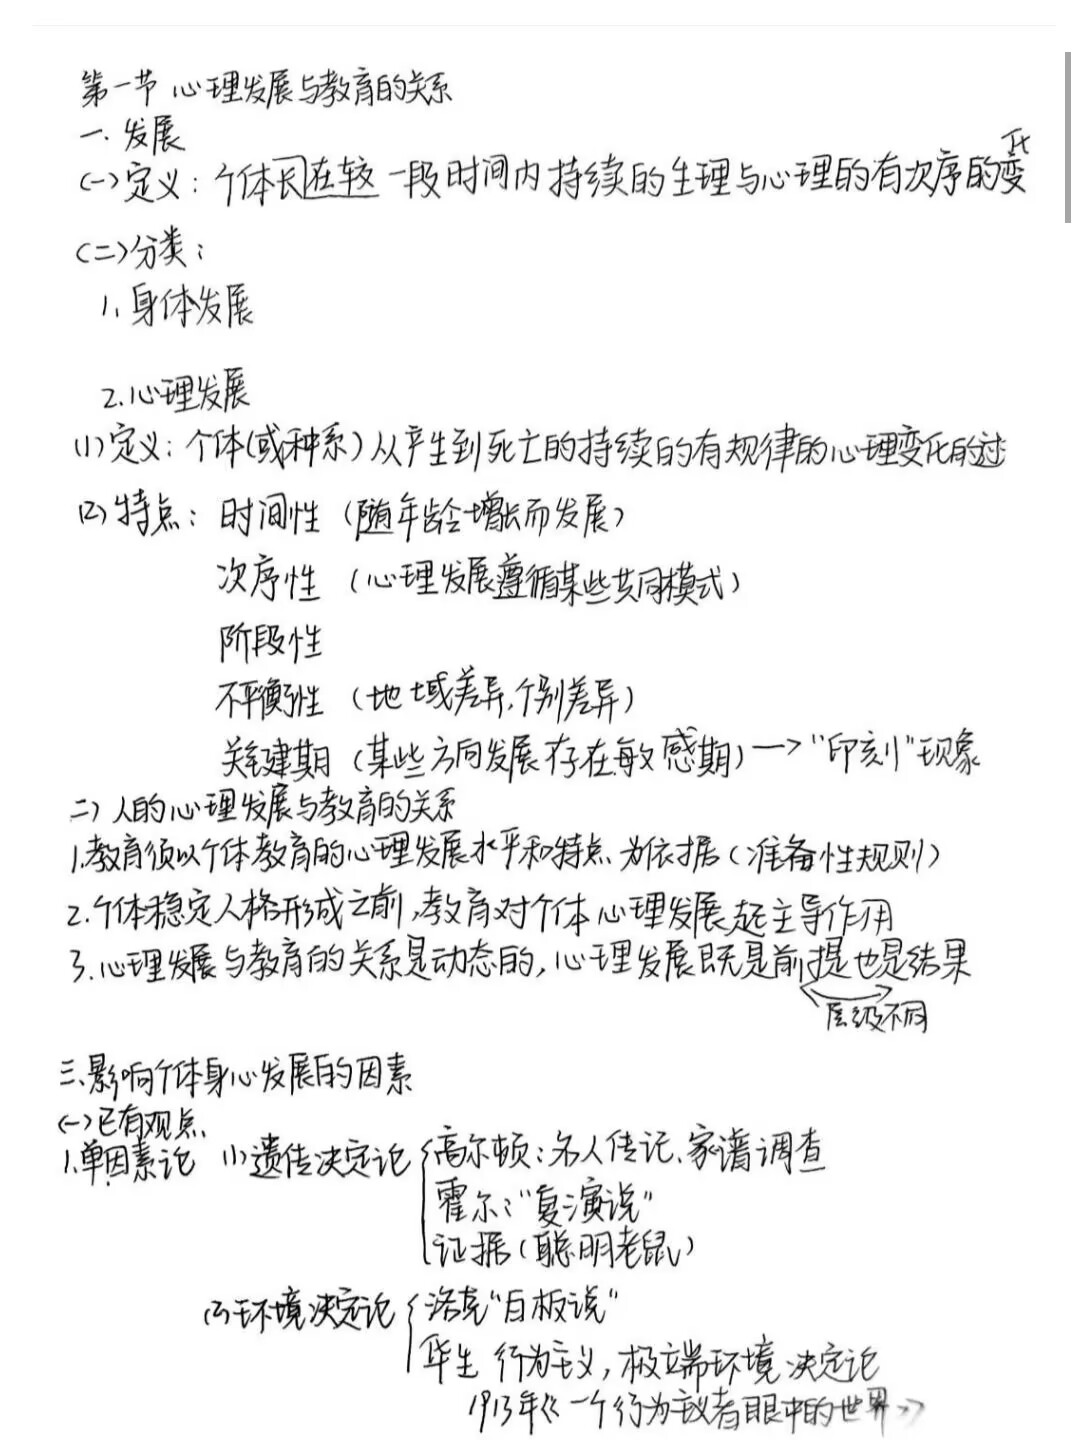 第一节 心理发展与教育的关系
一.发展
(一)定义：个体长在较一段时间内持续的生理与心理的有次序的变化
(二)分类：
1、身体发展
2.心理发展
(1)定义：个体(或种系)从产生到死亡的持续的有规律的心理变化的过
(2)特点：时间性（随年龄增长而发展）
次序性（心理发展遵循某些共同模式）
阶段性
不平衡性（地域差异，个别差异）
关键期（某些方向发展存在敏感期）→"印刻"现象
二）人的心理发展与教育的关系
1.教育须以个体教育的心理发展水平和特点为依据（准备性规则）
2.个体稳定人格形成之前，教育对个体心理发展起主导作用
3.心理发展与教育的关系是动态的，心理发展既是前提也是结果
层级不同
三.影响个体身心发展的因素
(一)已有观点
1.单因素论 (1)遗传决定论 高尔顿：名人传记、家谱调查
霍尔："复演说"
证据（聪明老鼠）
(2)环境决定论 洛克"白板说"
华生 行为主义，极端环境决定论
1913年《一个行为主义者眼中的世界》